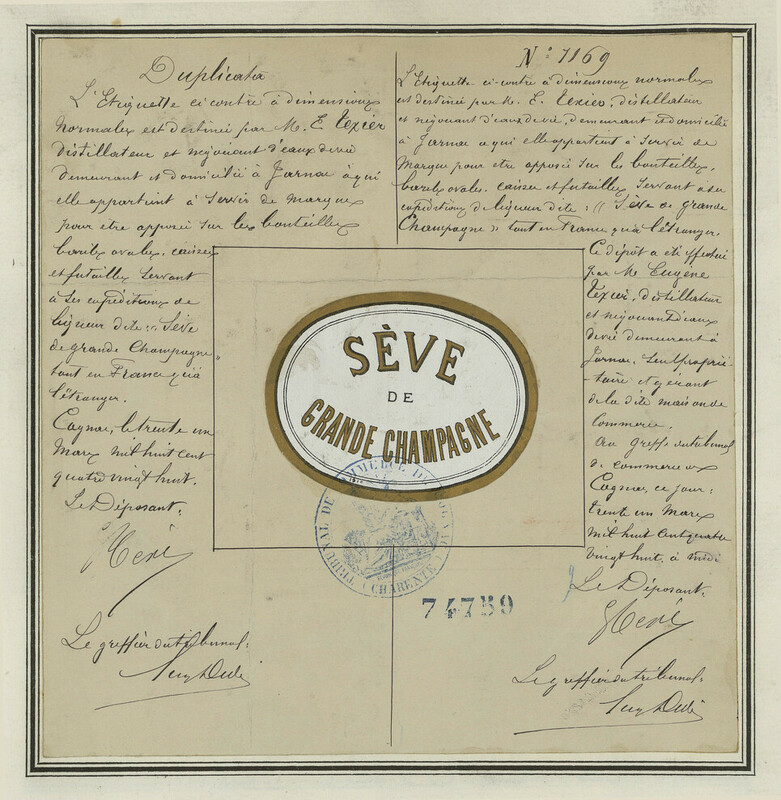 Duplicata
L'Etiquette ci contre à dimensions
normales est destinée par M. E. Texier
distillateur et négociant d'eaux de vie
demeurant et domicilié à Jarnac à qui
elle appartient à servir de marque
pour etre apposée sur les bouteilles
barils ovales, caisses
et futailles servant
à ses expéditions de
liqueur dite : " Sève
de grande Champagne "
tant en France qu'à
l'étranger.
Cognac, le trente un
Mars mil huit cent
quatre vingt huit.
Le Déposant.
Le greffier du tribunal.
N° 1169
L'Etiquette ci-contre à dimensions normales
est destinée par M. E. Texier, distillateur
et négociant d'eaux de vie, demeurant et domicilié
à Jarnac à qui elle appartient à servir de
Marque pour etre apposée sur les bouteilles,
barils ovales, caisses et futailles servant à ses
expéditions de liqueur dite : " Sève de grande
Champagne " tant en France qu'à l'étranger.
Ce dépôt a été effectué
par M. Eugène
Texier, distillateur
et négociant d'eaux
de vie demeurant à
Jarnac. Seul proprié-
taire et gérant
de la dite maison de
Commerce.
Au greffe du tribunal
de commerce de
Cognac, ce jour :
trente un Mars
mil huit cent quatre
vingt huit, à midi
Le Déposant.
Le greffier du tribunal.
SÈVE
DE
GRANDE CHAMPAGNE
TRIBUNAL DE COMMERCE DE COGNAC
(CHARENTE)
74759